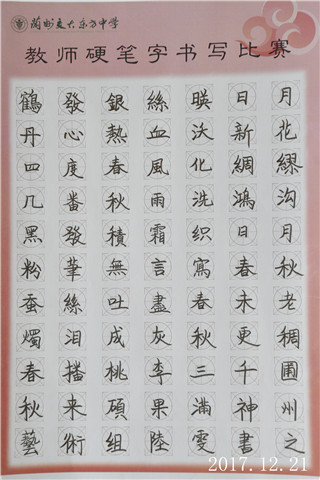 蘭州交大东方中学
教师硬笔字书写比赛
鶴發銀絲暎日月
丹心熱血沃新花
四度春風化綢繆
几番秋雨洗鴻沟
黑發積霜织日月
粉筆無言寫春秋
蚕絲吐盡春未老
燭泪成灰秋更稠
春播桃李三千圃
秋来碩果滿神州
藝術組陸雯書之
2017.12.21